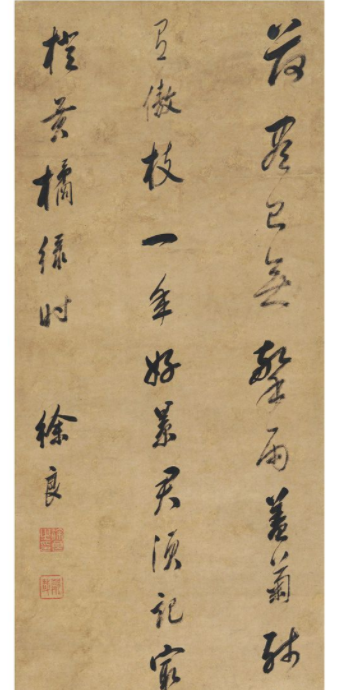 荷盡已無擎雨蓋菊殘
有傲枝一年好景君須記最
橙黃橘綠時
徐良